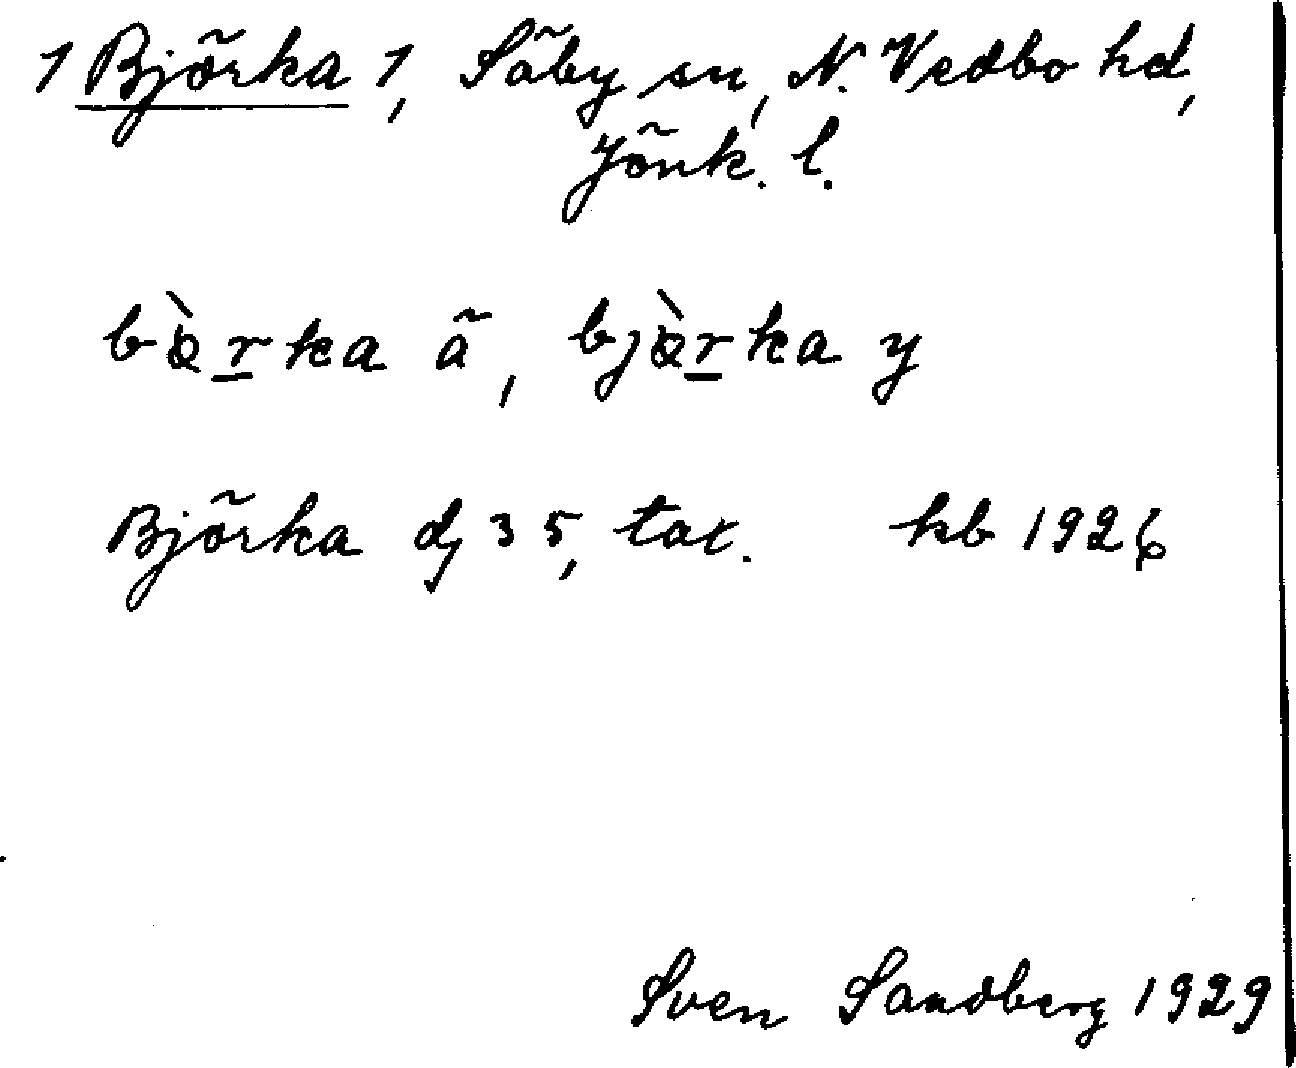 1 Björka 1, Säby sn, N. Vedbo hd,
Jönk. l.
bò̤rka ä, bjò̤rka y
Björka d, 35, tat. kb 1926
Sven Sandberg 1929